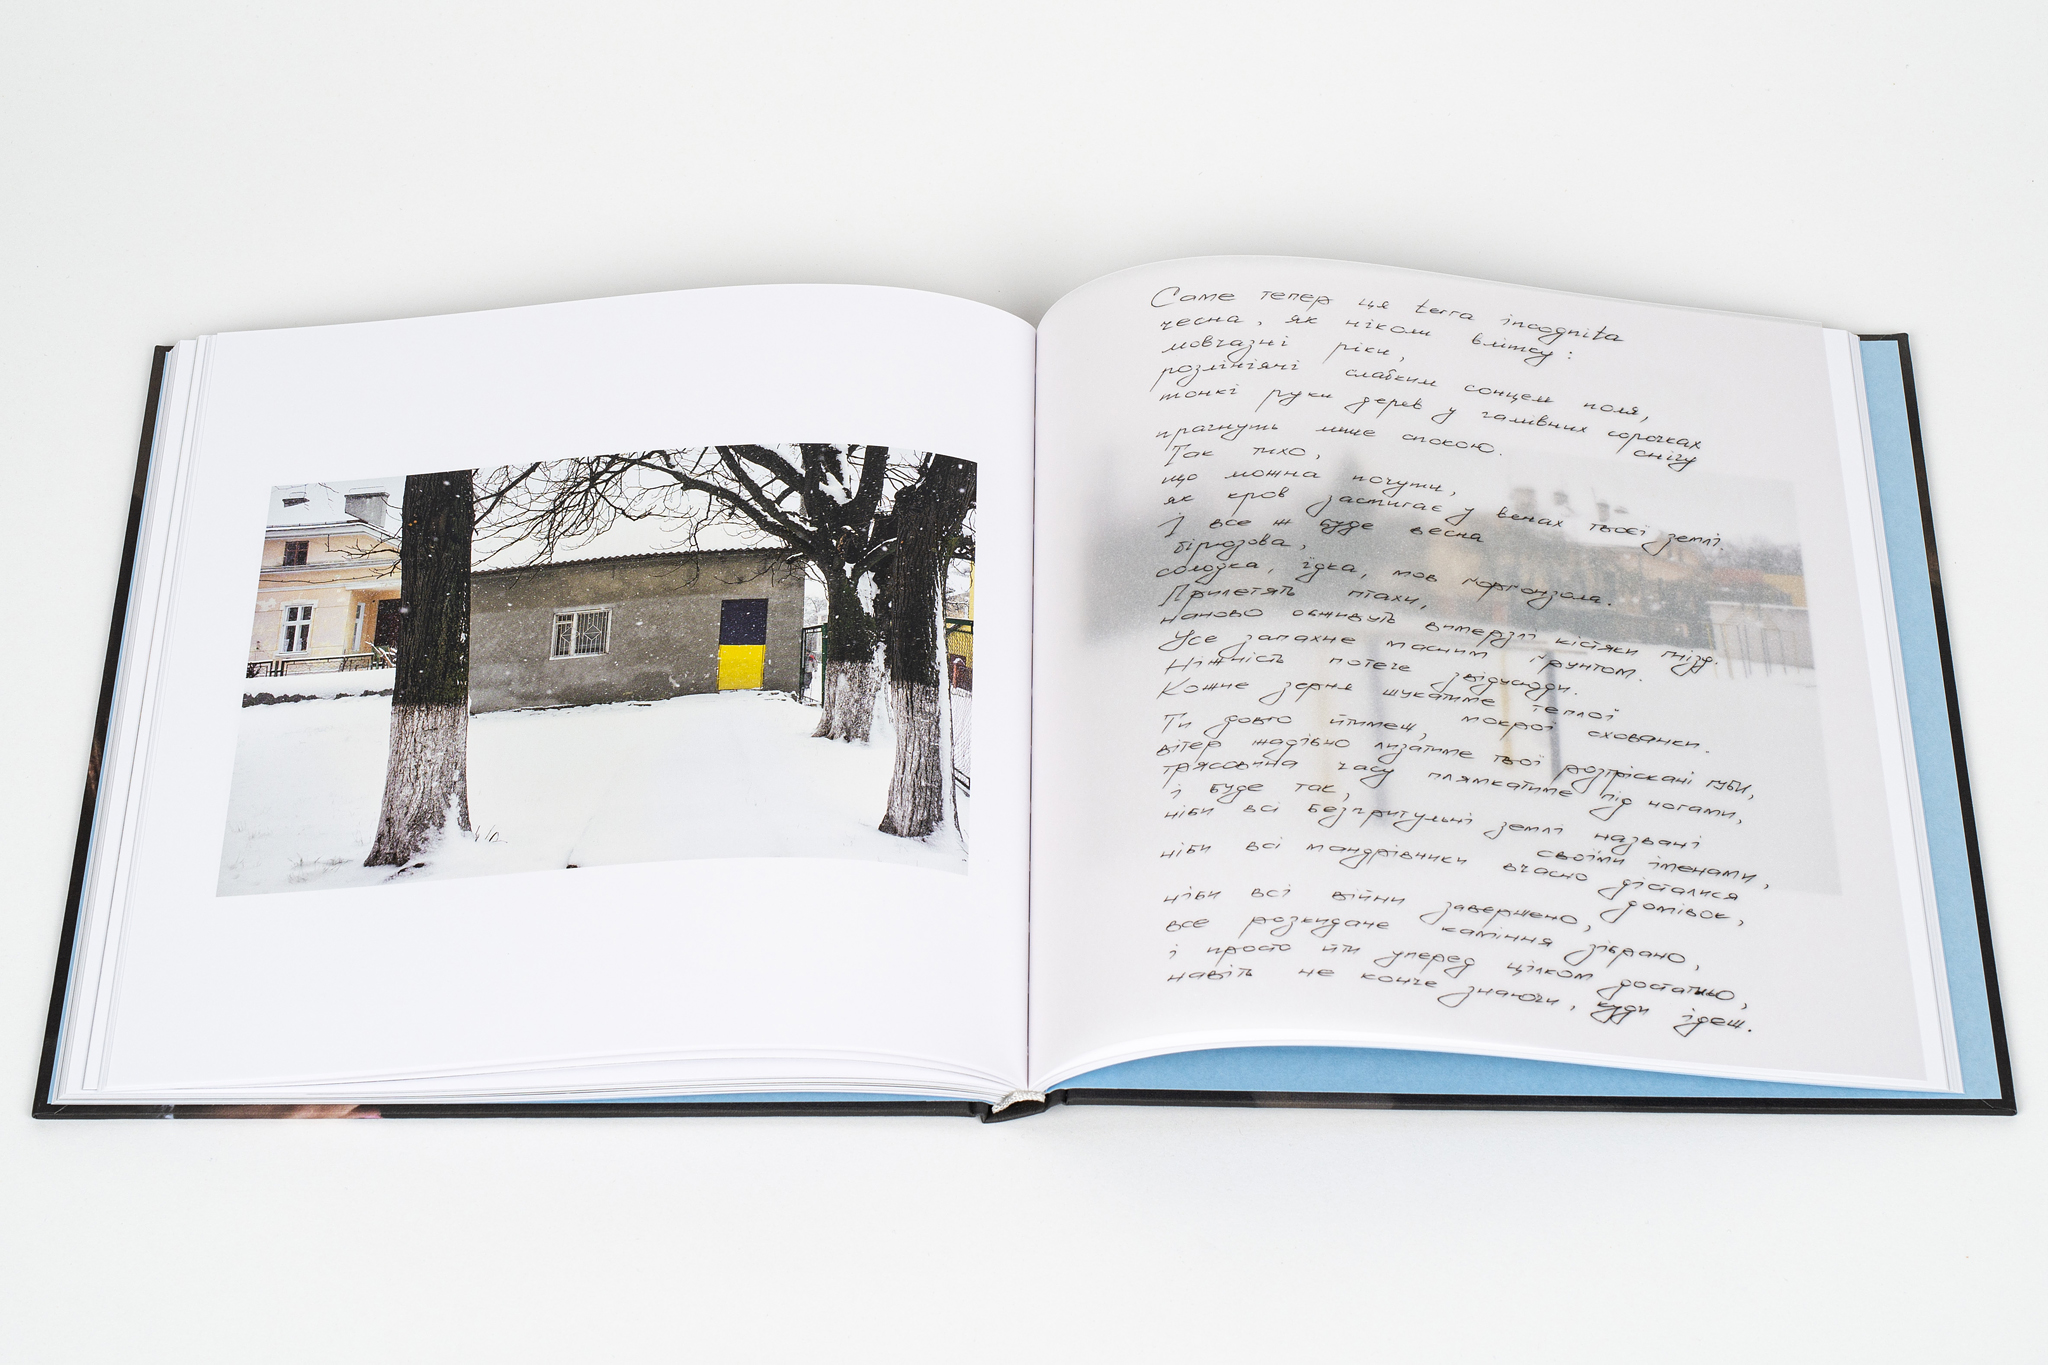 Саме тепер ця terra incognita
чесна, як ніколи влітку:
мовчазні ріки,
розлініяні слабким сонцем поля,
тонкі руки дерев у гамівних сорочках
снігу
прагнуть лише спокою.
Так тихо,
що можна почути,
як кров застигає у венах твоєї землі.
І все ж буде весна
бірюзова,
солодка, їдка, мов ґорґонзола.
Прилетять птахи,
наново обживуть вимерзлі кістяки гнізд.
Усе запахне масним ґрунтом.
Ніжність потече звідусюди.
Кожне зерня шукатиме теплої
мокрої схованки.
Ти довго йтимеш,
вітер жадібно лизатиме твої розтріскані губи,
трясовина часу плямкатиме під ногами,
і буде так,
ніби всі безпритульні землі названі
своїми іменами,
ніби всі мандрівники вчасно дісталися
домівок,
ніби всі війни завершено,
все розкидане каміння зібрано,
і просто йти уперед цілком достатньо,
навіть не конче знаючи, куди ідеш.